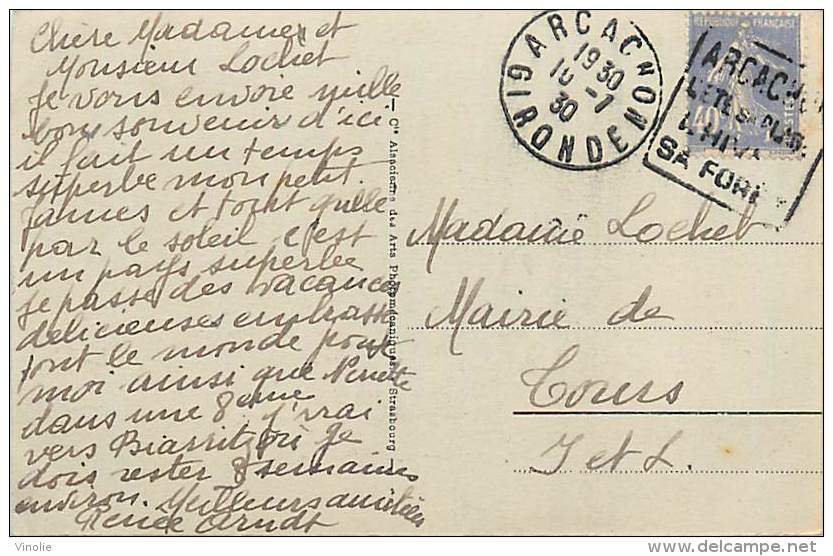 Chère Madame et
Monsieur Lochet
Je vous envoie mille
bons souvenirs d'ici
il fait un temps
superbe mon petit
James et tout
par le soleil c'est
un pays superbe
Je passe des vacances
délicieuses embrasse
tout le monde pour
moi ainsi que
dans une 8eme j'irai
vers Biarritz où je
dois rester 8 semaines
environ. Meilleurs amitiés
Renée Arndt
Cie Alsacienne des Arts Photomécaniques Strasbourg
ARCACHON
1930
10 - 7
30
GIRONDE
REPUBLIQUE FRANÇAISE
40
POSTES
ARCACHON
L'ÉTÉ SA PLAGE
L'HIVER
SA FORÊT
Madame Lochet
Mairie de
Tours
I et L.
Vinolie
delcampe.net